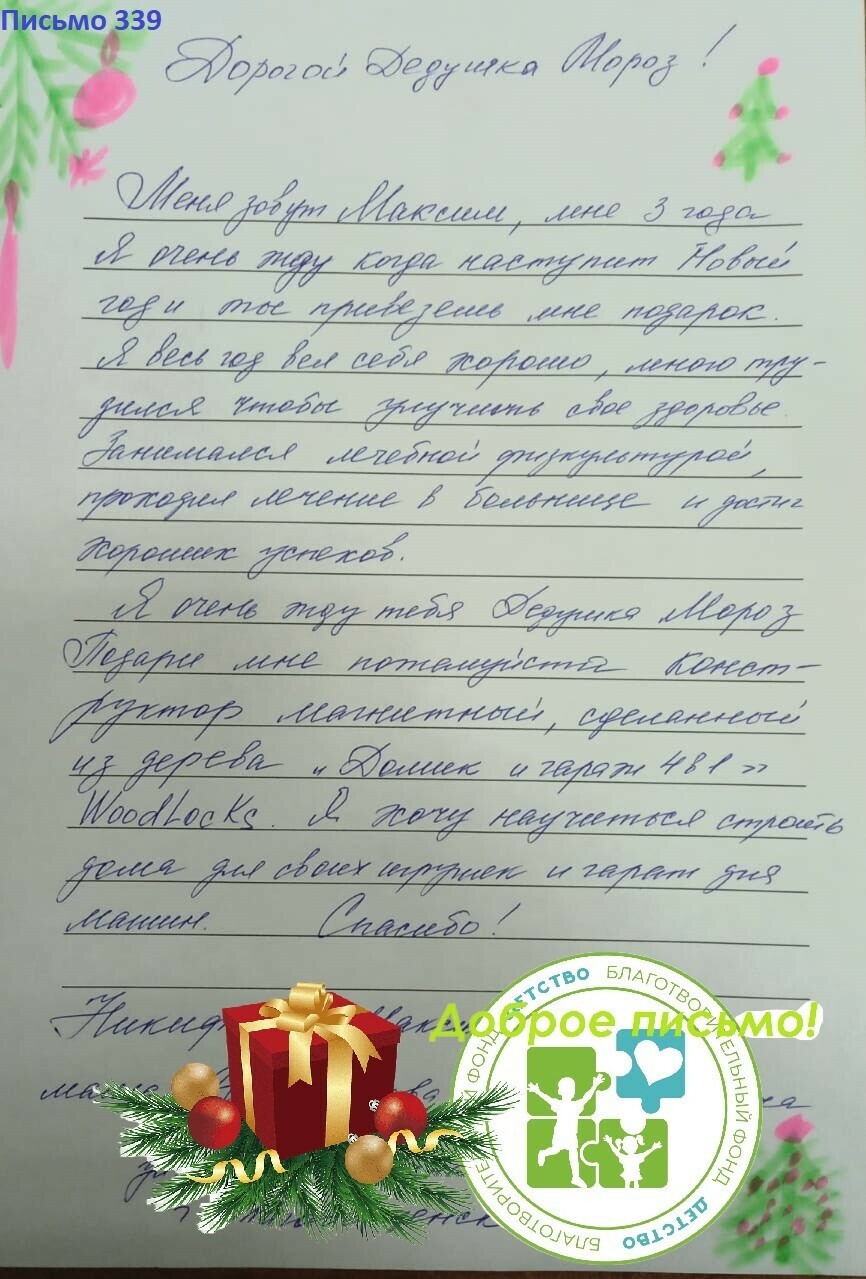 Письмо 339
Дорогой Дедушка Мороз!
Меня зовут Максим, мне 3 года
Я очень жду когда наступит Новый
год и ты привезешь мне подарок.
Я весь год вел себя хорошо, много тру-
дился чтобы улучшить свое здоровье.
Занимался лечебной физкультурой,
проходил лечение в больнице и достиг
хороших успехов.
Я очень жду тебя Дедушка Мороз
Подари мне пожалуйста конст-
руктор магнитный, сделанный
из дерева "Домик и гараж 4в1"
WoodLocKs. Я хочу научиться строить
дома для своих игрушек и гараж для
машин. Спасибо!
Доброе письмо!
БЛАГОТВОРИТЕЛЬНЫЙ ФОНД ДЕТСТВО
БЛАГОТВОРИТЕЛЬНЫЙ ФОНД ДЕТСТВО